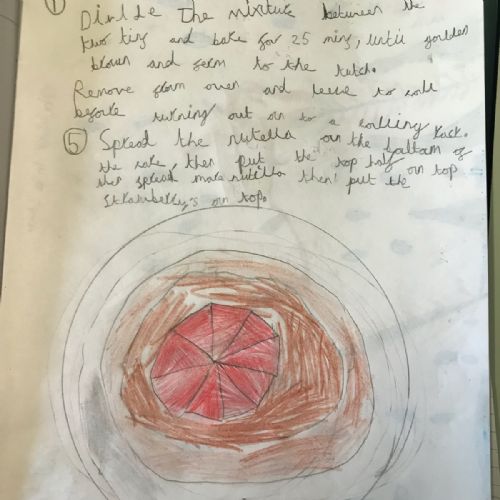 Divide The mixture between the
two tins and bake for 25 mins, until golden
brown and ferm to the tutch.
Remove from oven and leeve to cool
before turning out on to a colling Rack.
⑤ Spread the nutella on the bottam of
the cake, then put the top half on top
then spread more nutella then put the
Strawberry's on top.